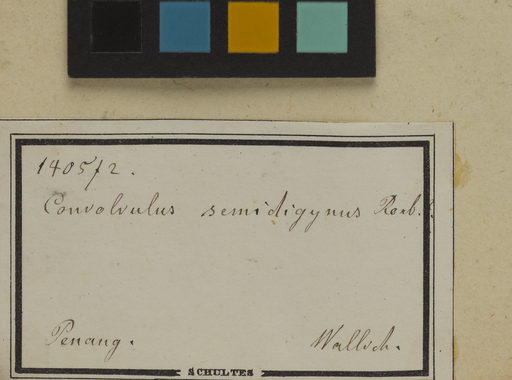 1405/2.
Convolvulus semidigynus Roxb.
Penang. Wallich.
SCHULTES